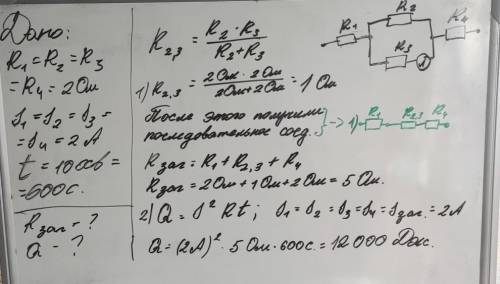 Дано:
R₁ = R₂ = R₃
= R₄ = 2 Ом
I₁ = I₂ = I₃ =
= I₄ = 2 А
t = 10 хв =
= 600 с.
Rзаг – ?
Q – ?
R₂,₃ = R₂ · R₃ / R₂ + R₃
1) R₂,₃ = 2 Ом · 2 Ом / 2 Ом + 2 Ом = 1 Ом
После этого получим
последовательное соед. } -> 1) R₁ R₂,₃ R₄
Rзаг = R₁ + R₂,₃ + R₄
Rзаг = 2 Ом + 1 Ом + 2 Ом = 5 Ом.
2) Q = I² Rt ; I₁ = I₂ = I₃ = I₄ = Iзаг. = 2 А
Q = (2А)² · 5 Ом · 600 с. = 12 000 Дж.
R₁ R₂ R₃ R₄